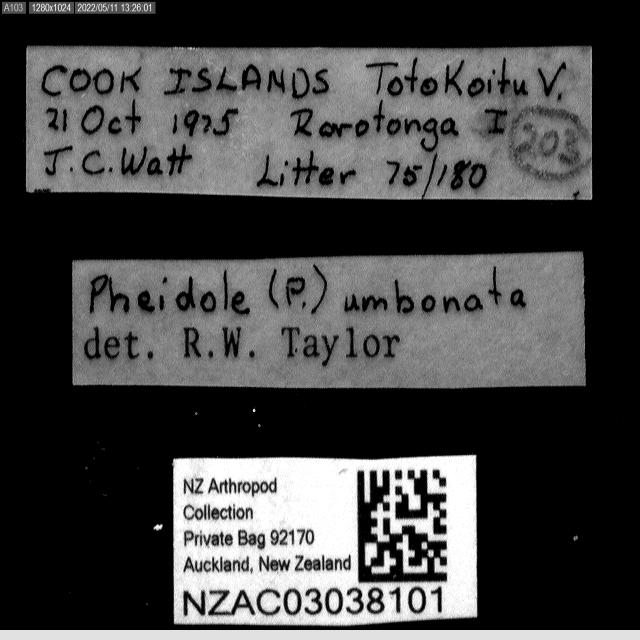 A103 1280x1024 2022/05/11 13:26:01
COOK ISLANDS TotoKoitu V.
21 Oct 1975 Rarotonga I 203
J.C.Watt Litter 75/180
Pheidole (P.) umbonata
det. R.W. Taylor
NZ Arthropod
Collection
Private Bag 92170
Auckland, New Zealand
NZAC03038101